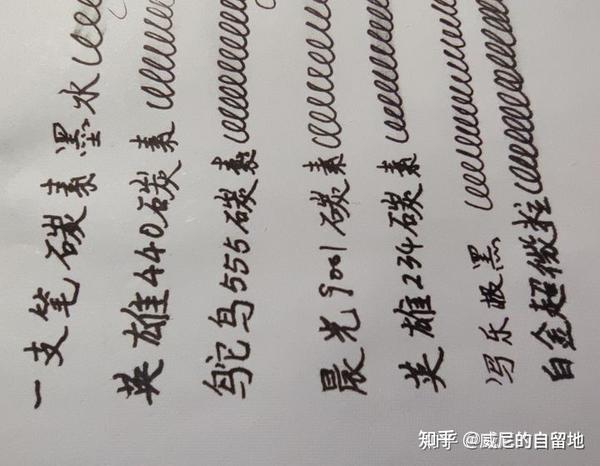 一支笔碳素墨水
英雄440碳素
鸵鸟555碳素
晨光9001碳素
英雄234碳素
写乐极黑
白金超微粒
知乎 @威尼的自留地